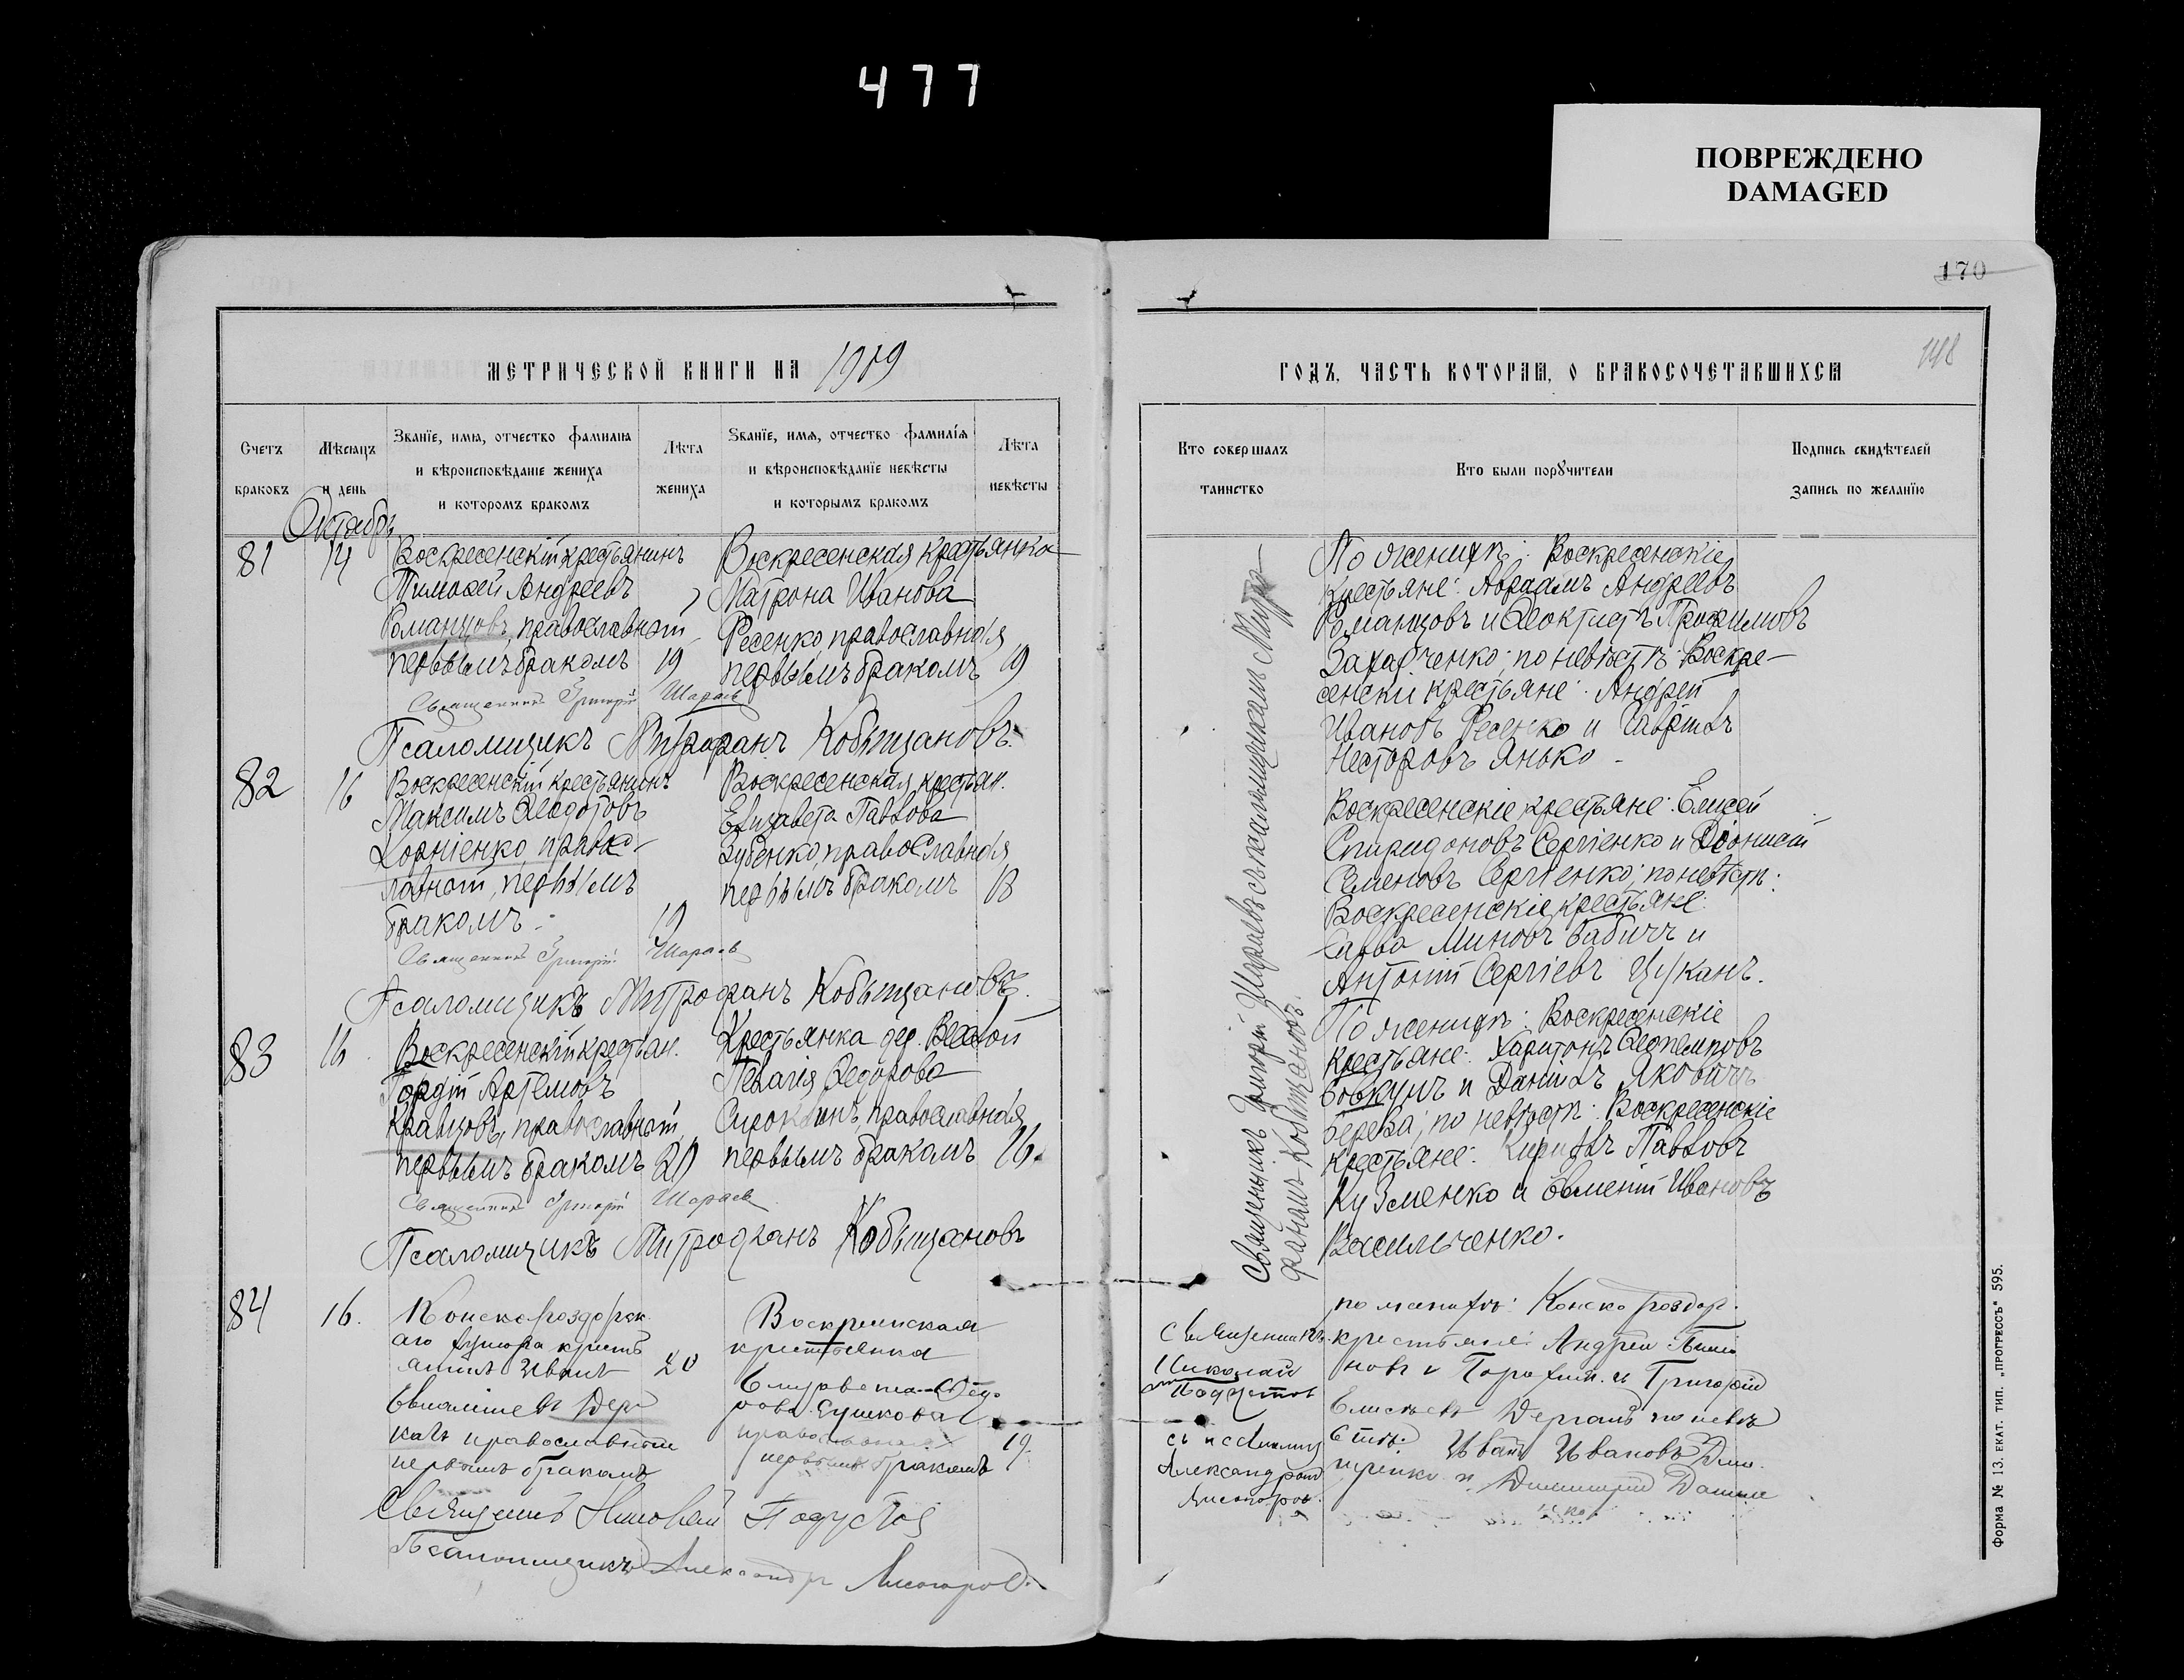 477
ПОВРЕЖДЕНО
DAMAGED
170
148
МЕТРИЧЕСКОЙ КНИГИ НА 1919
ГОДЪ, ЧАСТЬ КОТОРАЯ, О БРАКОСОЧЕТАВШИХСЯ
Счетъ браковъ
Мѣсяцъ и день
Званіе, имя, отчество фамилія и вѣроисповѣданіе жениха и которомъ бракомъ
Лѣта жениха
Званіе, имя, отчество фамилія и вѣроисповѣданіе невѣсты и которымъ бракомъ
Лѣта невѣсты
Кто совершалъ таинство
Кто были поручители
Подпись свидѣтелей запись по желанію
Октябрь
81 14
Воскресенскій крестьянинъ
Тимофей Андреевъ
Романцовъ, православный
первымъ бракомъ 19
Воскресенская крестьянка
Матрона Иванова
Фесенко, православная
первымъ бракомъ 19
Священникъ Григорій Шараевъ
Псаломщикъ Митрофанъ Кобыщановъ.
82 16
Воскресенскій крестьянинъ
Максимъ Ѳеодотовъ
Корніенко, правос-
лавный, первымъ
бракомъ. 19
Воскресенская крестьян.
Елизавета Павлова
Зубенко, православная
первымъ бракомъ 18
Священникъ Григорій Шараевъ
Псаломщикъ Митрофанъ Кобыщановъ.
83 16.
Воскресенскій крестьян.
Гордій Артемовъ
Кравцовъ, православный,
первымъ бракомъ 20
Крестьянка дер. Веселой
Пелагія Ѳедорова
православная
первымъ бракомъ 16.
Священникъ Григорій Шараевъ
Псаломщикъ Митрофанъ Кобыщановъ
84 16.
Конскораздорск
аго хутора кресть
янинъ Иванъ 20
Дер
качъ православный
первымъ бракомъ
Воскресенская
крестьянка
Елизавета Ѳедо
рова
православная
первымъ бракомъ 19.
Священникъ Николай
Псаломщикъ Александръ Лисогоров.
Священникъ Григорій Шараевъ съ псаломщикомъ Митро-
фаномъ Кобыщановъ.
По женихѣ: Воскресенскіе
крестьяне: Авраамъ Андреевъ
Романцовъ и Ѳеоктистъ Трофимовъ
Захарченко; по невѣстѣ: Воскре-
сенскіе крестьяне: Андрей
Ивановъ Фесенко и Гавріилъ
Несторовъ Янько
Воскресенскіе крестьяне: Елисей
Спиридоновъ Сергіенко и Діонисій
Семеновъ Сергіенко; по невѣстѣ:
Воскресенскіе крестьяне:
Савва Миновъ Бабичъ и
Антоній Сергіевъ Цуканъ.
По женихѣ: Воскресенскіе
крестьяне: Харитонъ
Бовкунъ и Даніилъ Яковичъ
Береза; по невѣстѣ: Воскресенскіе
крестьяне: Кириллъ Павловъ
Кузменко и Евменій Ивановъ
Васильченко.
Священникъ
Николай
съ псаломщ
Александромъ
Лисогоров.
Конскораздор.
крестьяне: Андрей
и Григорій
Деркачъ по невѣ
стѣ: Иванъ Ивановъ
и Димитрій
Форма № 13. ЕКАТ. ТИП. „ПРОГРЕССЪ" 595.